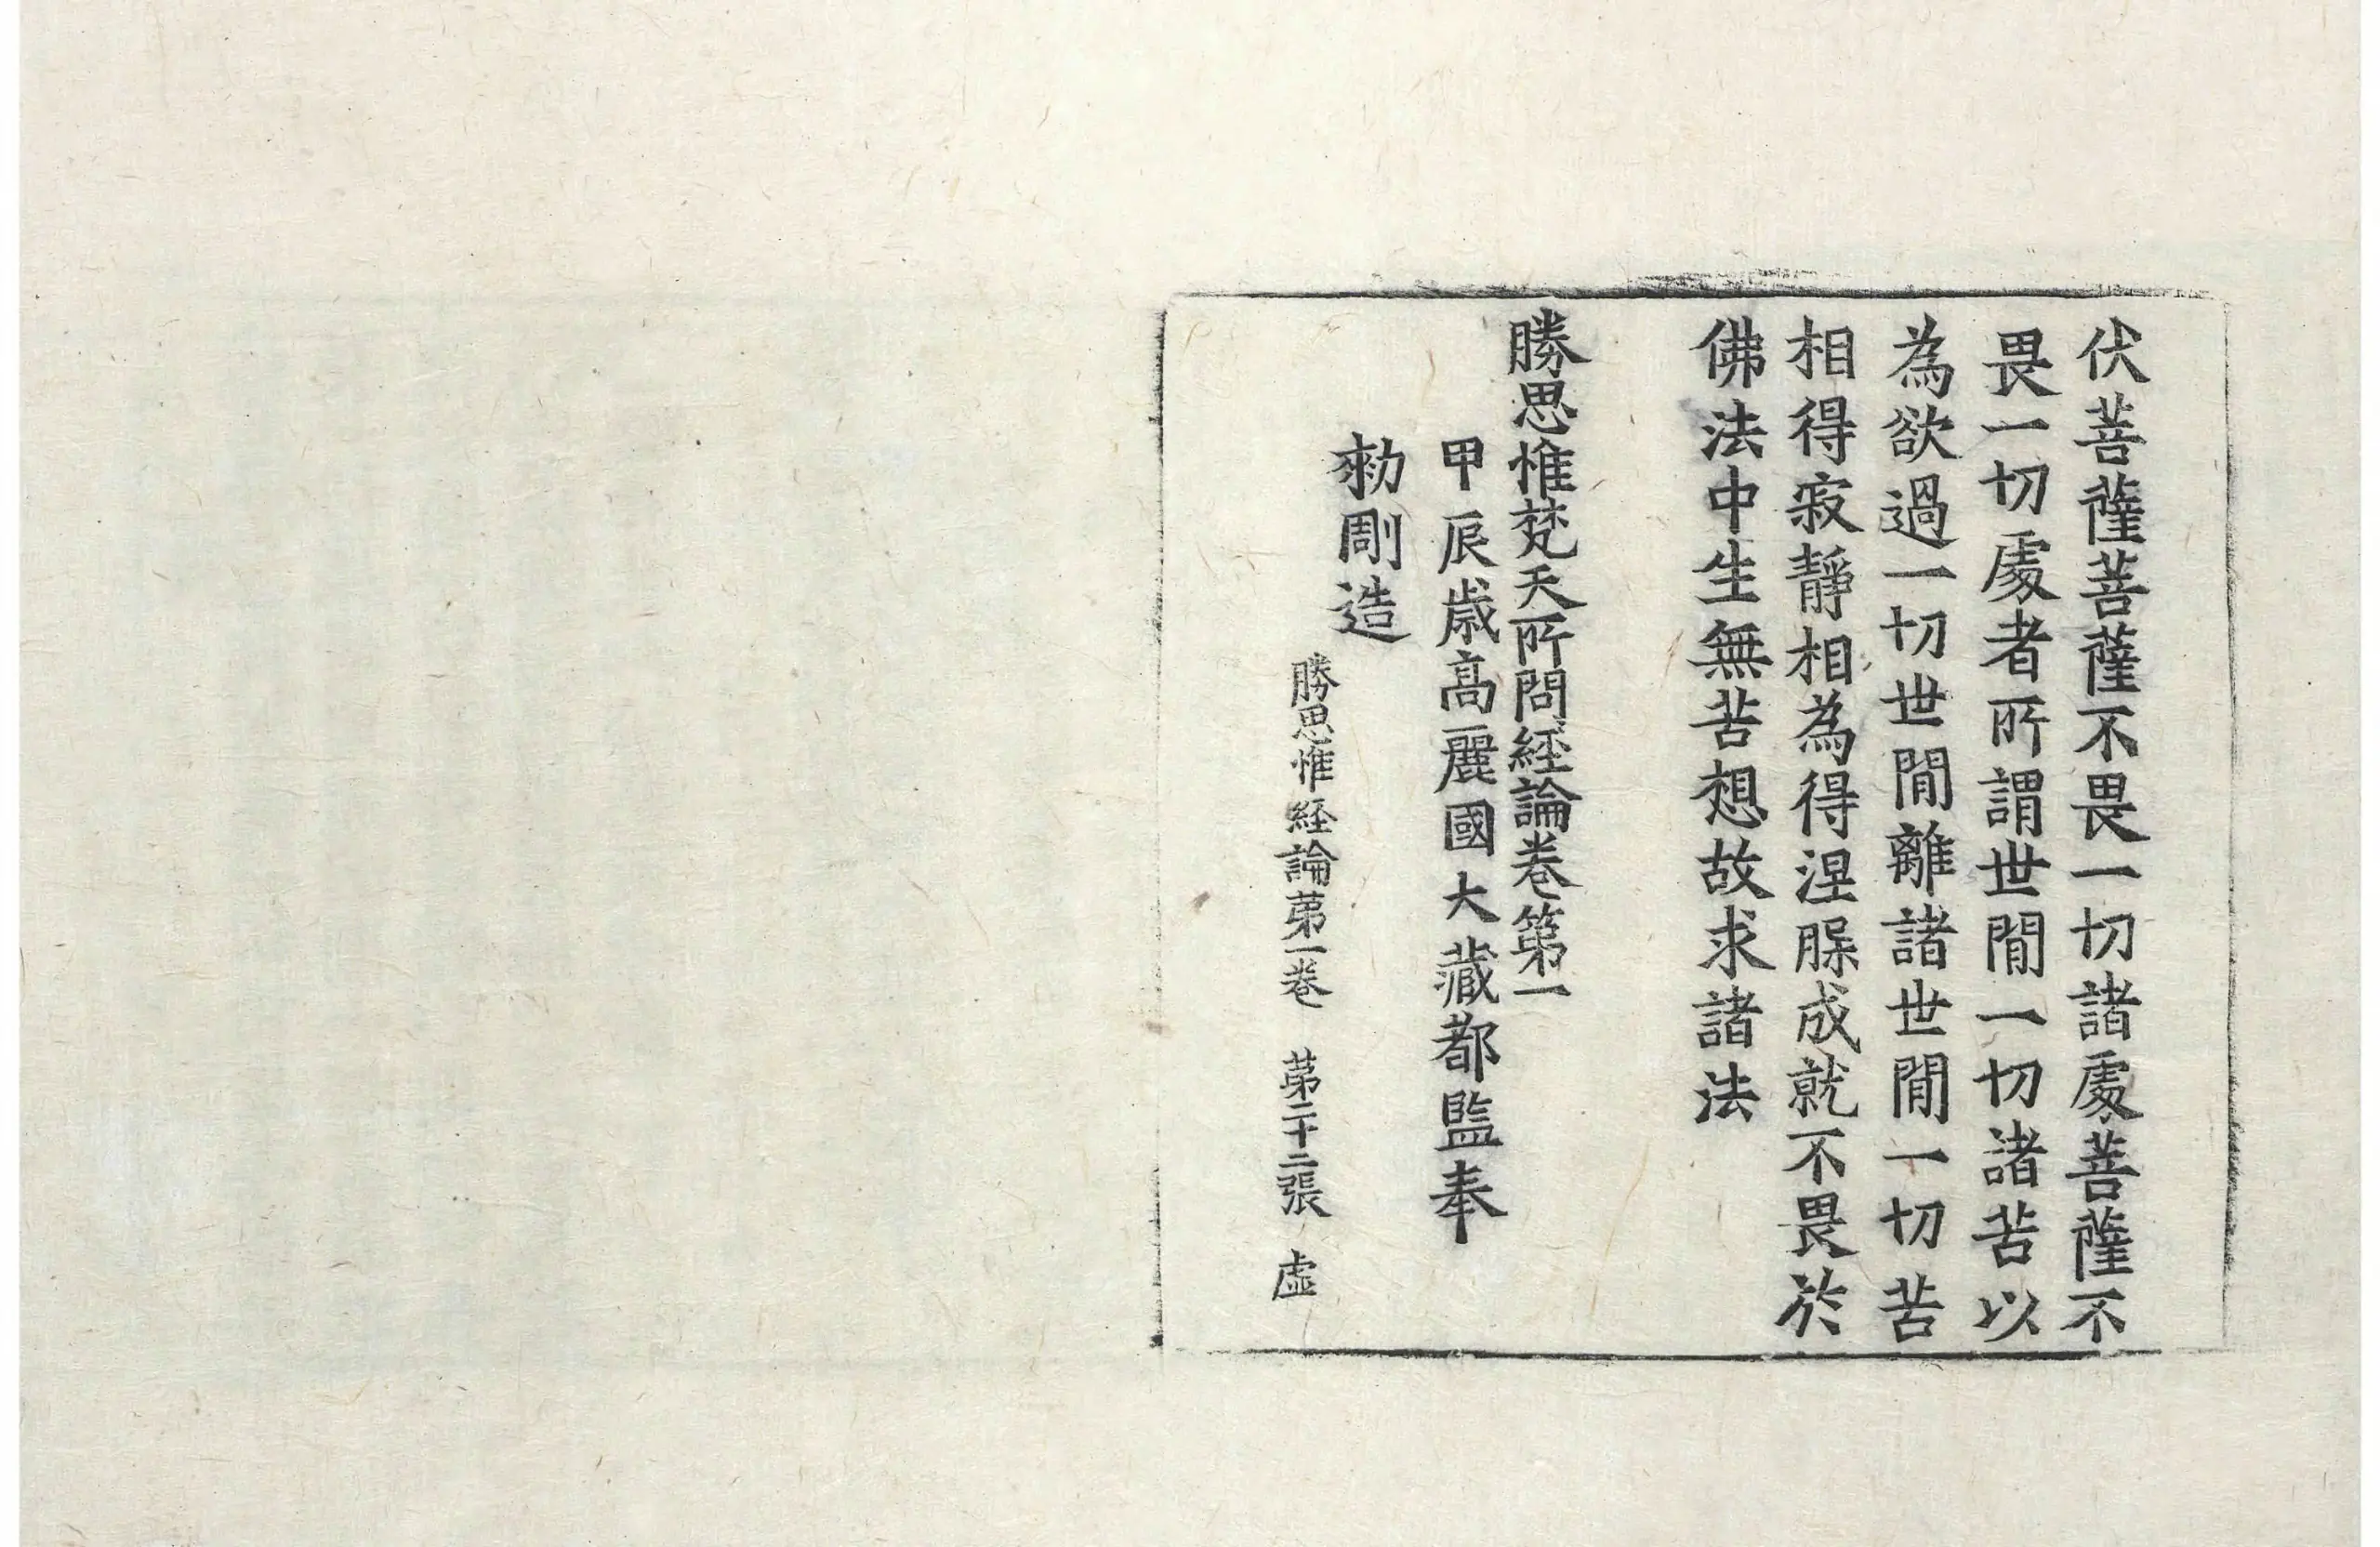 伏菩薩菩薩不畏一切諸處菩薩不
畏一切處者所謂世間一切諸苦以
為欲過一切世間離諸世間一切苦
相得寂靜相為得涅槃成就不畏於
佛法中生無苦想故求諸法
勝思惟梵天所問經論卷第一
甲辰歲高麗國大藏都監奉
勑彫造
勝思惟經論第一卷 第二十二張 虛